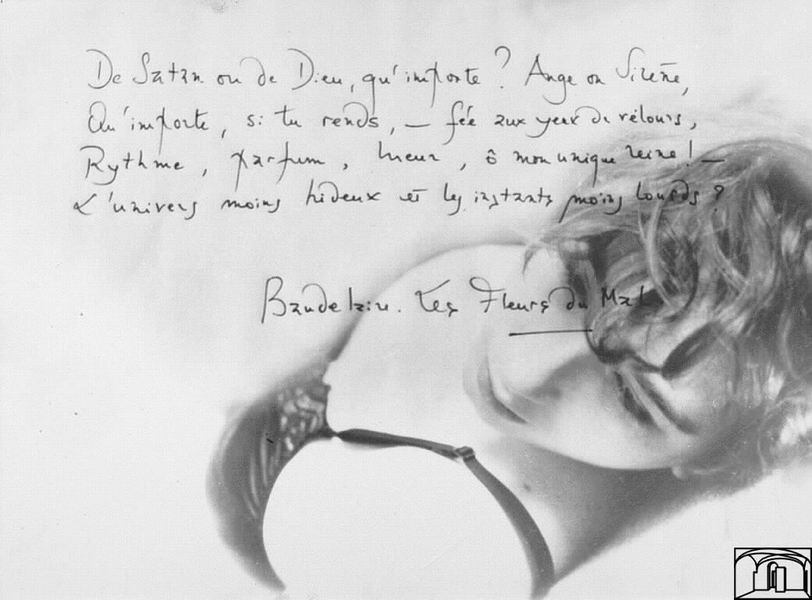 De Satan ou de Dieu, qu'importe ? Ange ou Sirène,
Qu'importe, si tu rends, — fée aux yeux de velours,
Rythme, parfum, lueur, ô mon unique reine ! —
L'univers moins hideux et les instants moins lourds ?
Baudelaire. Les Fleurs du Mal